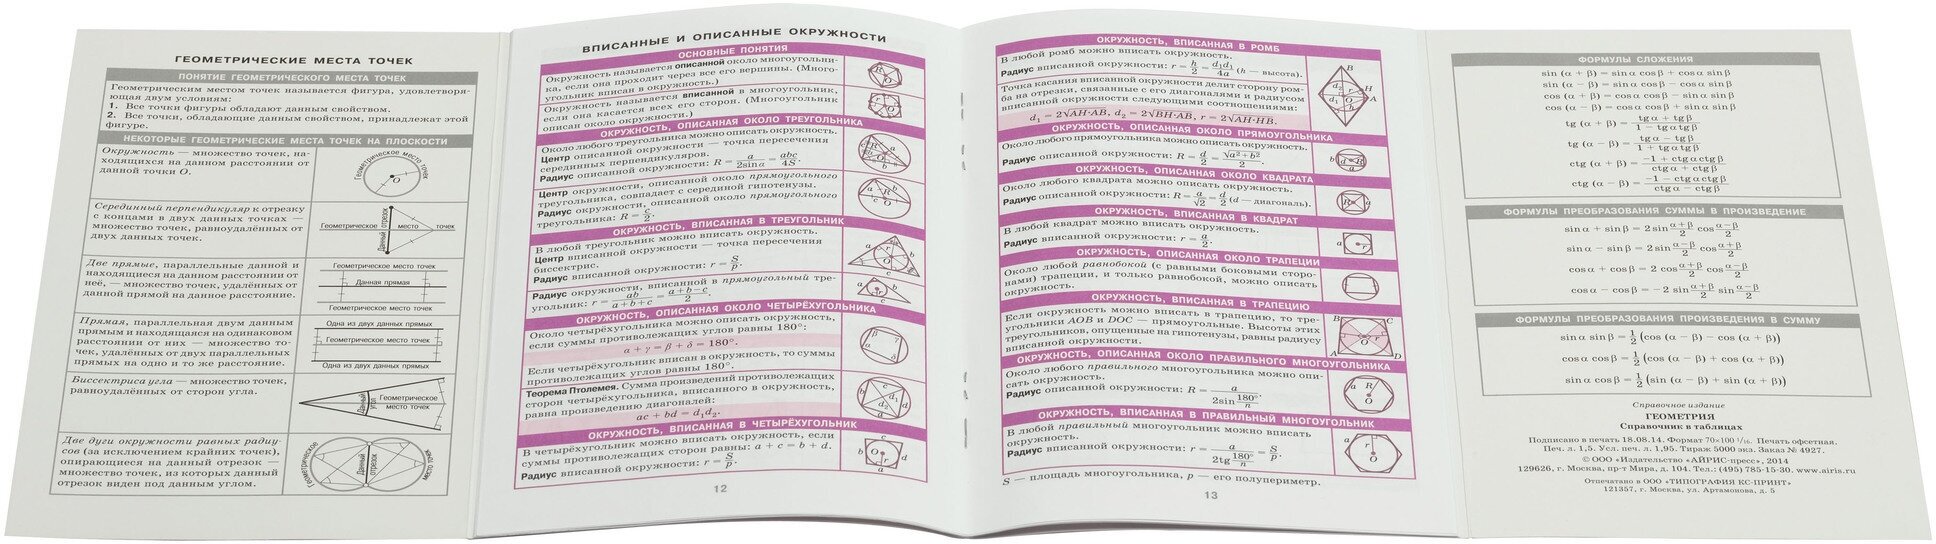 ГЕОМЕТРИЧЕСКИЕ МЕСТА ТОЧЕК
ПОНЯТИЕ ГЕОМЕТРИЧЕСКОГО МЕСТА ТОЧЕК
Геометрическим местом точек называется фигура, удовлетворя-
ющая двум условиям:
1. Все точки фигуры обладают данным свойством.
2. Все точки, обладающие данным свойством, принадлежат этой
фигуре.
НЕКОТОРЫЕ ГЕОМЕТРИЧЕСКИЕ МЕСТА ТОЧЕК НА ПЛОСКОСТИ
Окружность — множество точек, на-
ходящихся на данном расстоянии от
данной точки O.
Геометрическое место точек
O
Серединный перпендикуляр к отрезку
с концами в двух данных точках —
множество точек, равноудалённых от
двух данных точек.
Геометрическое место точек
Данный отрезок
Две прямые, параллельные данной и
находящиеся на данном расстоянии от
неё, — множество точек, удалённых от
данной прямой на данное расстояние.
Геометрическое место точек
Данная прямая
Геометрическое место точек
Прямая, параллельная двум данным
прямым и находящаяся на одинаковом
расстоянии от них — множество то-
чек, удалённых от двух параллельных
прямых на одно и то же расстояние.
Одна из двух данных прямых
Геометрическое место точек
Одна из двух данных прямых
Биссектриса угла — множество точек,
равноудалённых от сторон угла.
Данный угол
Геометрическое
место точек
Две дуги окружности равных радиу-
сов (за исключением крайних точек),
опирающиеся на данный отрезок —
множество точек, из которых данный
отрезок виден под данным углом.
Геометрическое
Данный отрезок
место точек
ВПИСАННЫЕ И ОПИСАННЫЕ ОКРУЖНОСТИ
ОСНОВНЫЕ ПОНЯТИЯ
Окружность называется описанной около многоугольни-
ка, если она проходит через все его вершины. (Много-
угольник вписан в окружность.)
Окружность называется вписанной в многоугольник,
если она касается всех его сторон. (Многоугольник
описан около окружности.)
ОКРУЖНОСТЬ, ОПИСАННАЯ ОКОЛО ТРЕУГОЛЬНИКА
Около любого треугольника можно описать окружность.
Центр описанной окружности — точка пересечения
серединных перпендикуляров.
Радиус описанной окружности: R = a/2sin α = abc/4S.
Центр окружности, описанной около прямоугольного
треугольника, совпадает с серединой гипотенузы.
Радиус окружности, описанной около прямоугольного
треугольника: R = c/2.
ОКРУЖНОСТЬ, ВПИСАННАЯ В ТРЕУГОЛЬНИК
В любой треугольник можно вписать окружность.
Центр вписанной окружности — точка пересечения
биссектрис.
Радиус вписанной окружности: r = S/p.
Радиус окружности, вписанной в прямоугольный тре-
угольник: r = ab/a+b+c = a+b−c/2.
ОКРУЖНОСТЬ, ОПИСАННАЯ ОКОЛО ЧЕТЫРЁХУГОЛЬНИКА
Около четырёхугольника можно описать окружность,
если суммы противолежащих углов равны 180°:
α + γ = β + δ = 180°.
Если четырёхугольник вписан в окружность, то суммы
противолежащих углов равны 180°.
Теорема Птолемея. Сумма произведений противолежащих
сторон четырёхугольника, вписанного в окружность,
равна произведению диагоналей:
ac + bd = d₁d₂.
ОКРУЖНОСТЬ, ВПИСАННАЯ В ЧЕТЫРЁХУГОЛЬНИК
В четырёхугольник можно вписать окружность, если
суммы противолежащих сторон равны: a + c = b + d.
Радиус вписанной окружности: r = S/p.
12
ОКРУЖНОСТЬ, ВПИСАННАЯ В РОМБ
В любой ромб можно вписать окружность.
Радиус вписанной окружности: r = h/2 = d₁d₂/4a (h — высота).
Точка касания вписанной окружности делит сторону ром-
ба на отрезки, связанные с его диагоналями и радиусом
вписанной окружности следующими соотношениями:
d₁ = 2√AH·AB, d₂ = 2√BH·AB, r = 2√AH·HB.
ОКРУЖНОСТЬ, ОПИСАННАЯ ОКОЛО ПРЯМОУГОЛЬНИКА
Около любого прямоугольника можно описать окружность.
Радиус описанной окружности: R = d/2 = √a²+b²/2.
ОКРУЖНОСТЬ, ОПИСАННАЯ ОКОЛО КВАДРАТА
Около любого квадрата можно описать окружность.
Радиус описанной окружности: R = a/√2 = d/2 (d — диагональ).
ОКРУЖНОСТЬ, ВПИСАННАЯ В КВАДРАТ
В любой квадрат можно вписать окружность.
Радиус вписанной окружности: r = a/2.
ОКРУЖНОСТЬ, ОПИСАННАЯ ОКОЛО ТРАПЕЦИИ
Около любой равнобокой (с равными боковыми сторо-
нами) трапеции, и только равнобокой, можно описать
окружность.
ОКРУЖНОСТЬ, ВПИСАННАЯ В ТРАПЕЦИЮ
Если окружность можно вписать в трапецию, то тре-
угольники AOB и DOC — прямоугольные. Высоты этих
треугольников, опущенные на гипотенузы, равны радиусу
вписанной окружности.
ОКРУЖНОСТЬ, ОПИСАННАЯ ОКОЛО ПРАВИЛЬНОГО МНОГОУГОЛЬНИКА
Около любого правильного многоугольника можно опи-
сать окружность.
Радиус описанной окружности: R = a/2sin 180°/n
ОКРУЖНОСТЬ, ВПИСАННАЯ В ПРАВИЛЬНЫЙ МНОГОУГОЛЬНИК
В любой правильный многоугольник можно вписать
окружность.
Радиус вписанной окружности: r = a/2tg 180°/n = S/p.
S — площадь многоугольника, p — его полупериметр.
13
ФОРМУЛЫ СЛОЖЕНИЯ
sin (α + β) = sin α cos β + cos α sin β
sin (α − β) = sin α cos β − cos α sin β
cos (α + β) = cos α cos β − sin α sin β
cos (α − β) = cos α cos β + sin α sin β
tg (α + β) = tg α + tg β/1 − tg α tg β
tg (α − β) = tg α − tg β/1 + tg α tg β
ctg (α + β) = −1 + ctg α ctg β/ctg α + ctg β
ctg (α − β) = −1 − ctg α ctg β/ctg α − ctg β
ФОРМУЛЫ ПРЕОБРАЗОВАНИЯ СУММЫ В ПРОИЗВЕДЕНИЕ
sin α + sin β = 2 sin α+β/2 cos α−β/2
sin α − sin β = 2 sin α−β/2 cos α+β/2
cos α + cos β = 2 cos α+β/2 cos α−β/2
cos α − cos β = −2 sin α+β/2 sin α−β/2
ФОРМУЛЫ ПРЕОБРАЗОВАНИЯ ПРОИЗВЕДЕНИЯ В СУММУ
sin α sin β = 1/2 (cos (α − β) − cos (α + β))
cos α cos β = 1/2 (cos (α − β) + cos (α + β))
sin α cos β = 1/2 (sin (α − β) + sin (α + β))
Справочное издание
ГЕОМЕТРИЯ
Справочник в таблицах
Подписано в печать 18.08.14. Формат 70×100 1/16. Печать офсетная.
Печ. л. 1,5. Усл. печ. л. 1,95. Тираж 5000 экз. Заказ № 4927.
© ООО «Издательство «АЙРИС-пресс», 2014
129626, г. Москва, пр-т Мира, д. 104. Тел.: (495) 785-15-30. www.airis.ru
Отпечатано в ООО «ТИПОГРАФИЯ КС-ПРИНТ»
121357, г. Москва, ул. Артамонова, д. 5